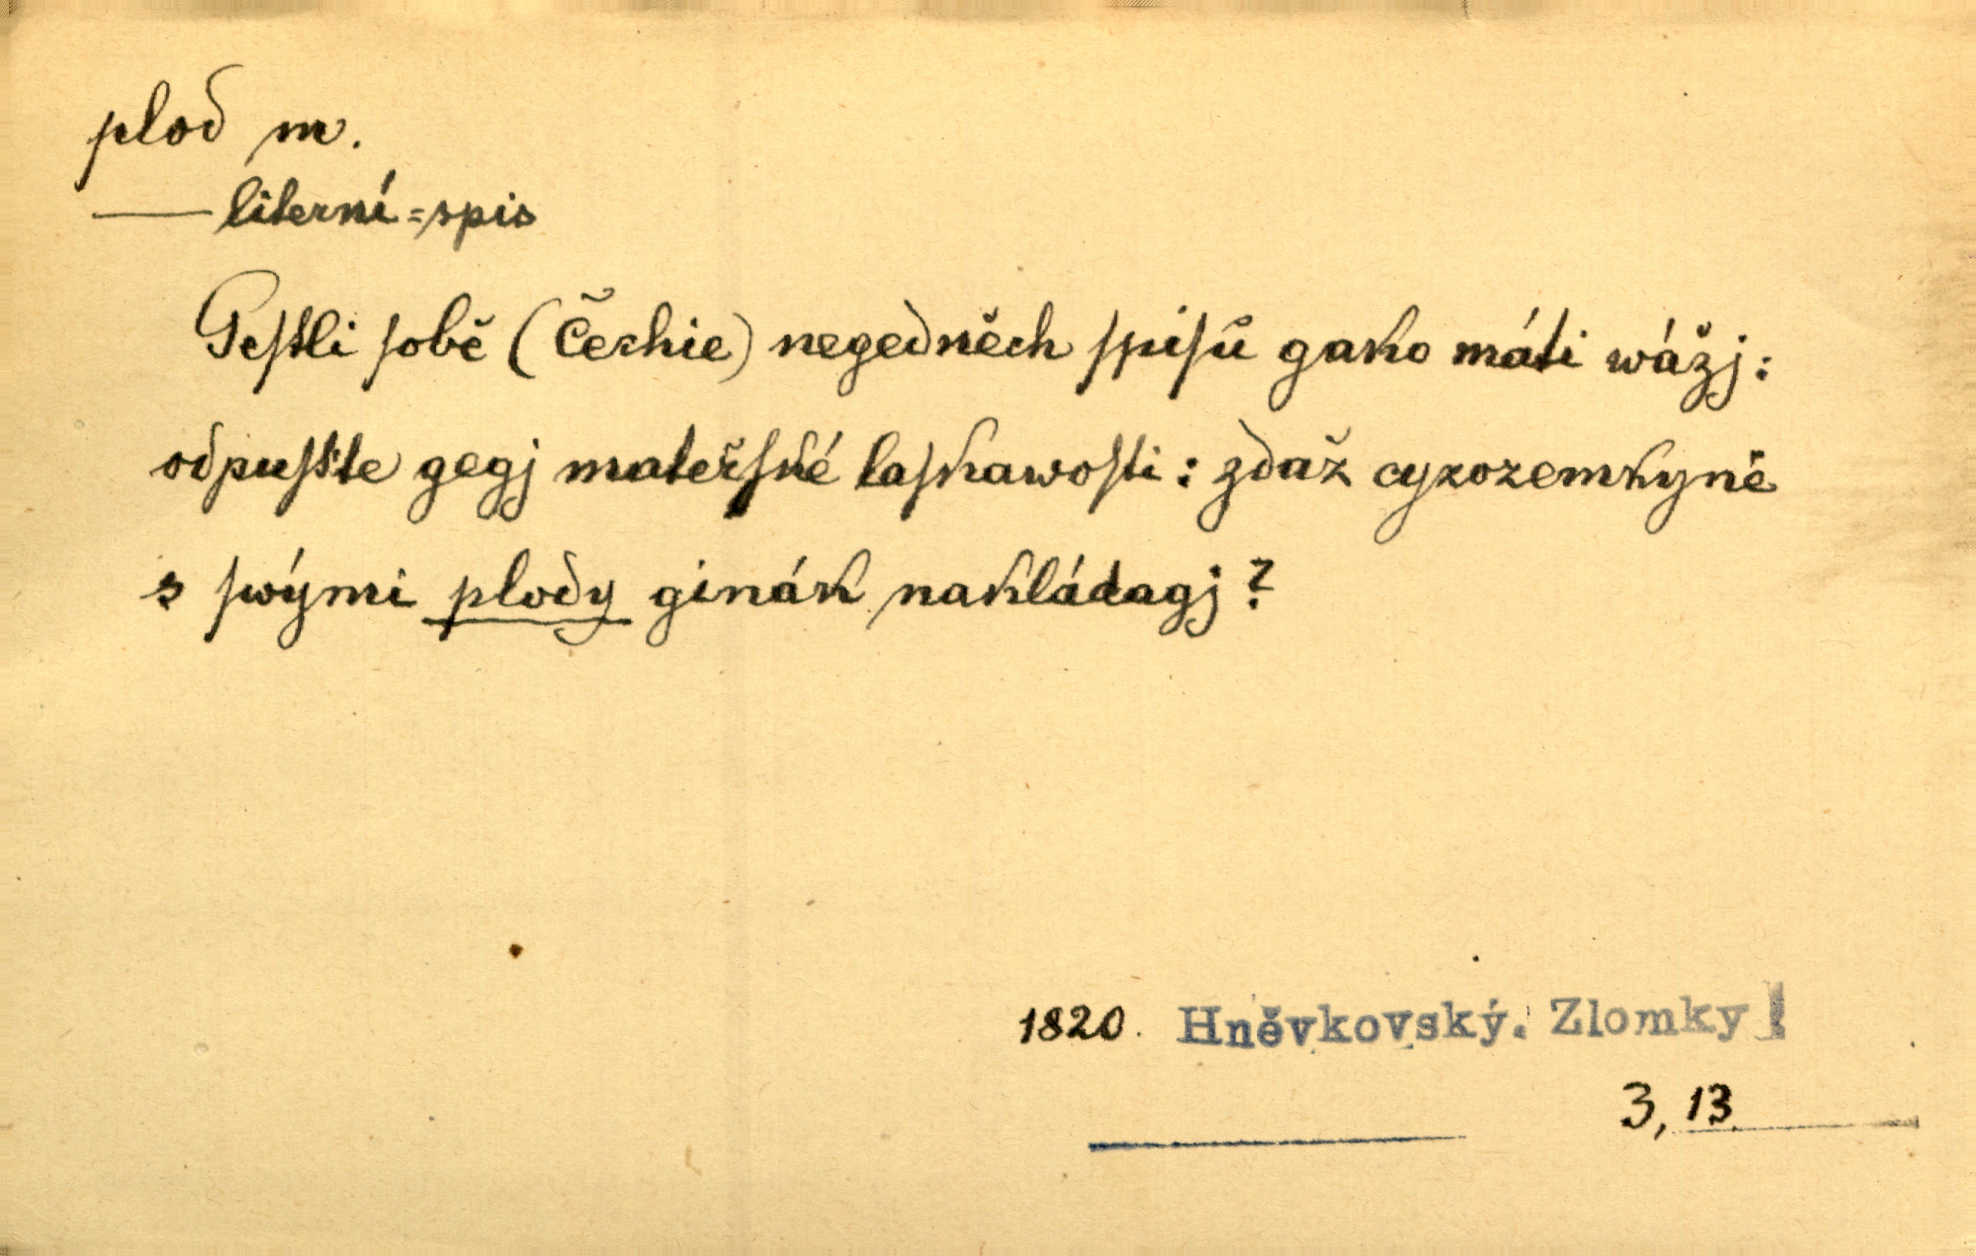 plod m.
— literní = spis
Gestli sobě (Čechie) negedněch spisů gako máti wážj:
odpusťte gegj mateřské laskawosti: zdaž cyzozemkyně
s swými plody ginák nakládagj?
1820. Hněvkovský. Zlomky
3, 13.